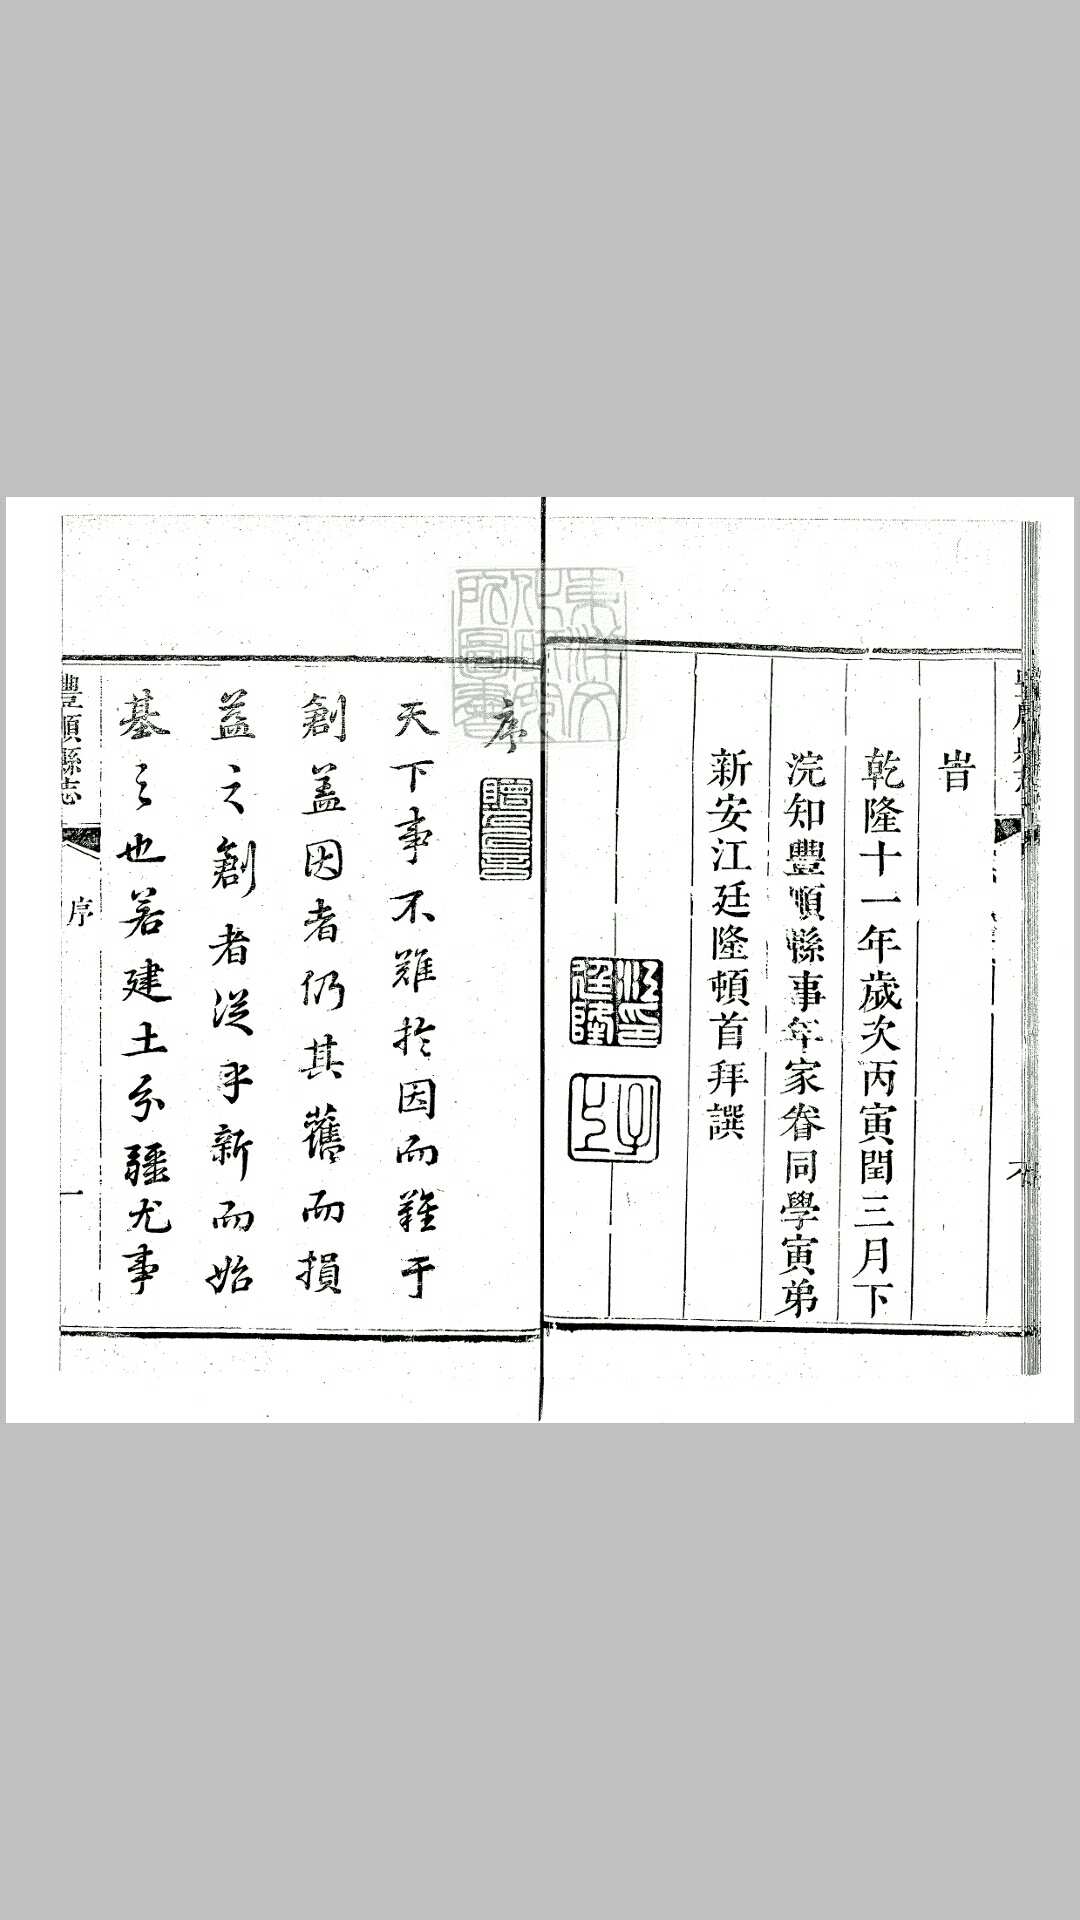 旹
乾隆十一年歲次丙寅閏三月下
浣知豐順縣事年家眷同學寅弟
新安江廷隆頓首拜譔
江廷隆印
東洋文化研究所圖書
序
天下事不難於因而難于
創蓋因者仍其舊而損
益之創者從乎新而始
基之也若建土分疆尤事
豐順縣志
序
一